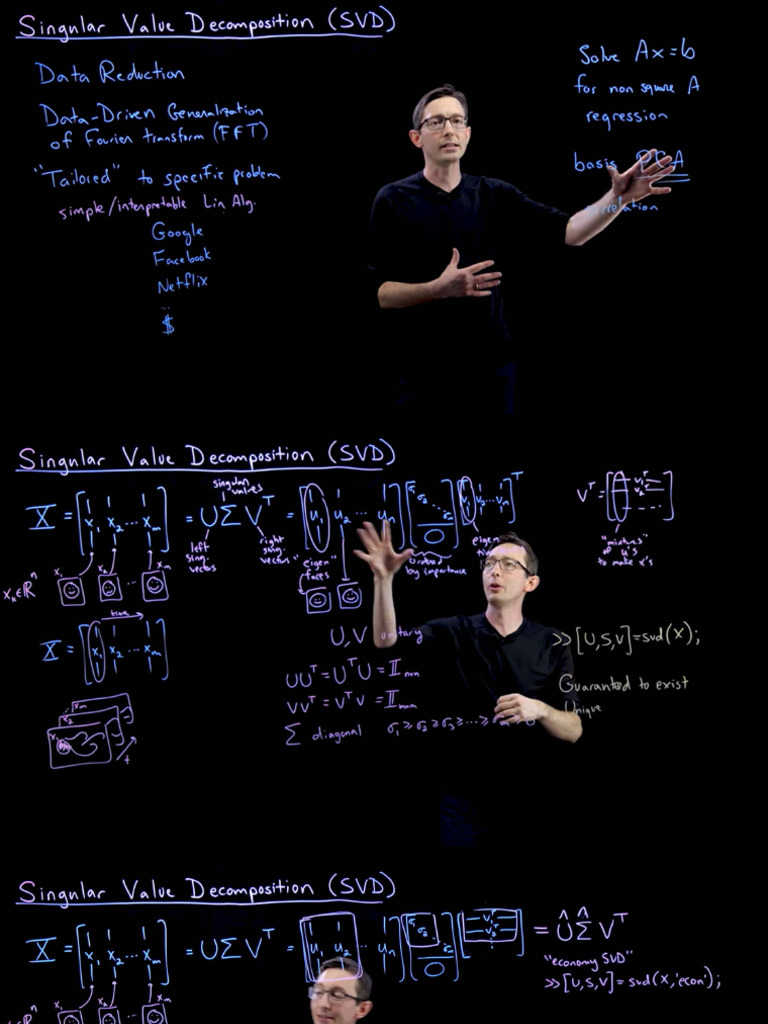 Singular Value Decomposition (SVD)
Data Reduction
Data-Driven Generalization
of Fourier transform (FFT)
"Tailored" to specific problem
simple/interpretable Lin Alg.
Google
Facebook
Netflix
...
$
Solve Ax=b
for non square A
regression
basis PCA
Singular Value Decomposition (SVD)
X = [x₁ x₂ ... xₘ] = UΣVᵀ = [u₁ u₂ ... uₙ] [σ₁ σ₂ ... σₘ 0] [v₁ v₂ ... vₘ]ᵀ
singular values
left sing. vectors
right sing. vectors
"eigen faces"
ordered by importance
eigen
Vᵀ = [v₁ᵀ v₂ᵀ ...]
"mixtures"
of u's
to make x's
xₖ∈ℝⁿ
x₁ x₂ ... xₘ
time
X = [x₁ x₂ ... xₘ]
x₁ x₂ ... xₘ
t
U,V unitary
UUᵀ = UᵀU = I n×n
VVᵀ = VᵀV = I m×m
Σ diagonal σ₁ ≥ σ₂ ≥ σ₃ ≥ ... ≥ σₘ ≥ 0
>>[U,S,V]=svd(X);
Guaranted to exist
Unique
Singular Value Decomposition (SVD)
X = [x₁ x₂ ... xₘ] = UΣVᵀ = [u₁ u₂ ... uₙ] [σ₁ σ₂ ... σₘ 0] [v₁ᵀ v₂ᵀ] = ÛΣ̂Vᵀ
"economy SVD"
>>[U,S,V]=svd(X,'econ');
xₖ∈ℝⁿ
x₁ x₂ ... xₘ